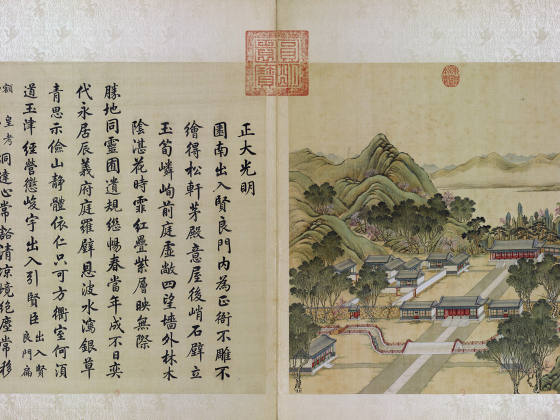 正大光明
園南出入賢良門內為正衙不雕不
繪得松軒茅殿意屋後峭石壁立
玉筍嶙峋前庭虛敞四望墻外林木
陰湛花時霏紅疊紫層映無際
勝地同靈囿遺規繼暢春當年成不日奕
代永居辰義府庭羅壁恩波水瀉銀草
青思示儉山靜體依仁只可方衢室何須
道玉津經營懲峻宇出入引賢臣出入賢良門扁
額皇考洞達心常豁清涼境絕塵常移